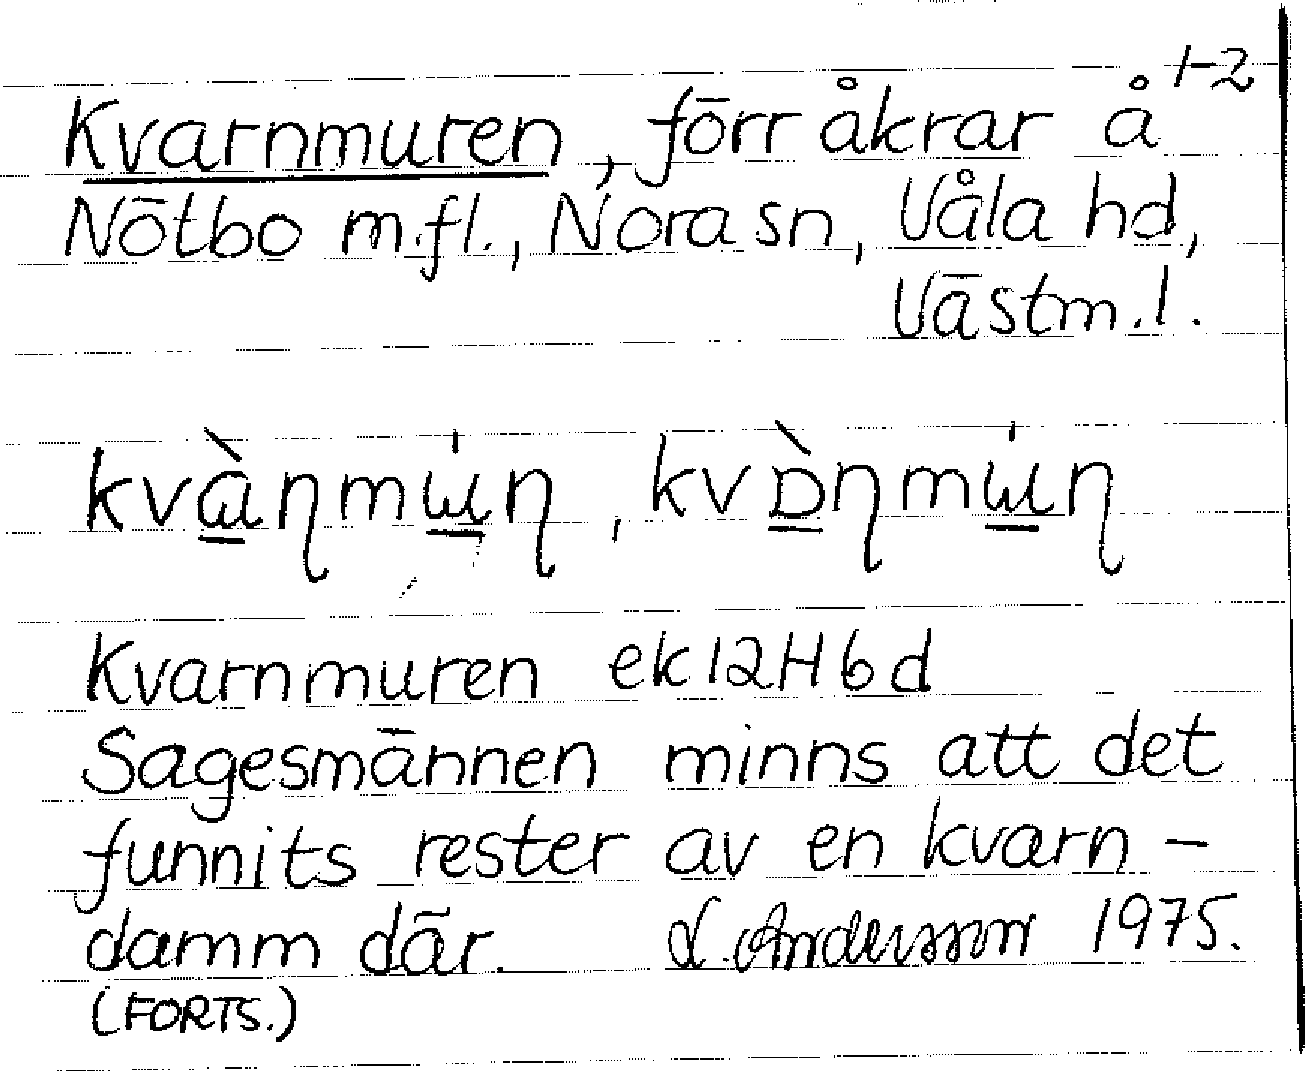 1-2
Kvarnmuren, förr åkrar å
Nötbo m.fl., Nora sn, Våla hd,
Västm.l.
kvɑ̀ɳmɯ́ɳ, kvɒ̀ɳmɯ́ɳ
Kvarnmuren ek 12H6d
Sagesmännen minns att det
funnits rester av en kvarn-
damm där. L. Andersson 1975.
(FORTS.)